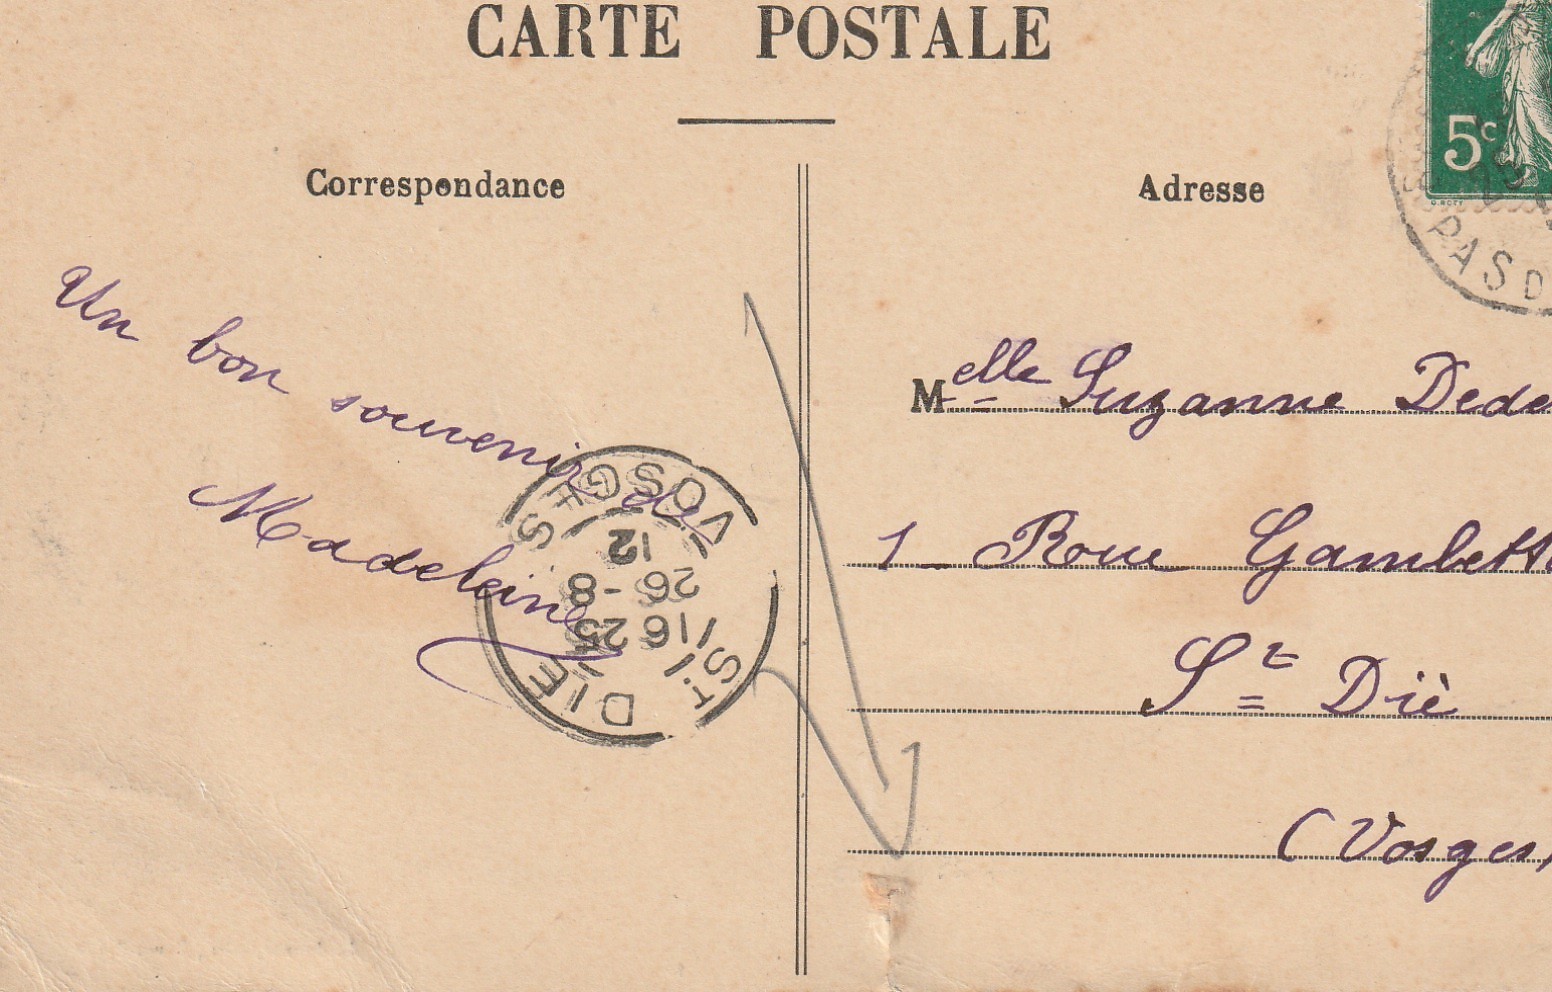 CARTE POSTALE
Correspondance
Adresse
5c
PAS D
Un bon souvenir de
Madeleine
VOSGES
12
26 - 8
16 25
ST. DIE
Melle Suzanne Dede
1 Roue Gambetta
St Diè
(Vosges)